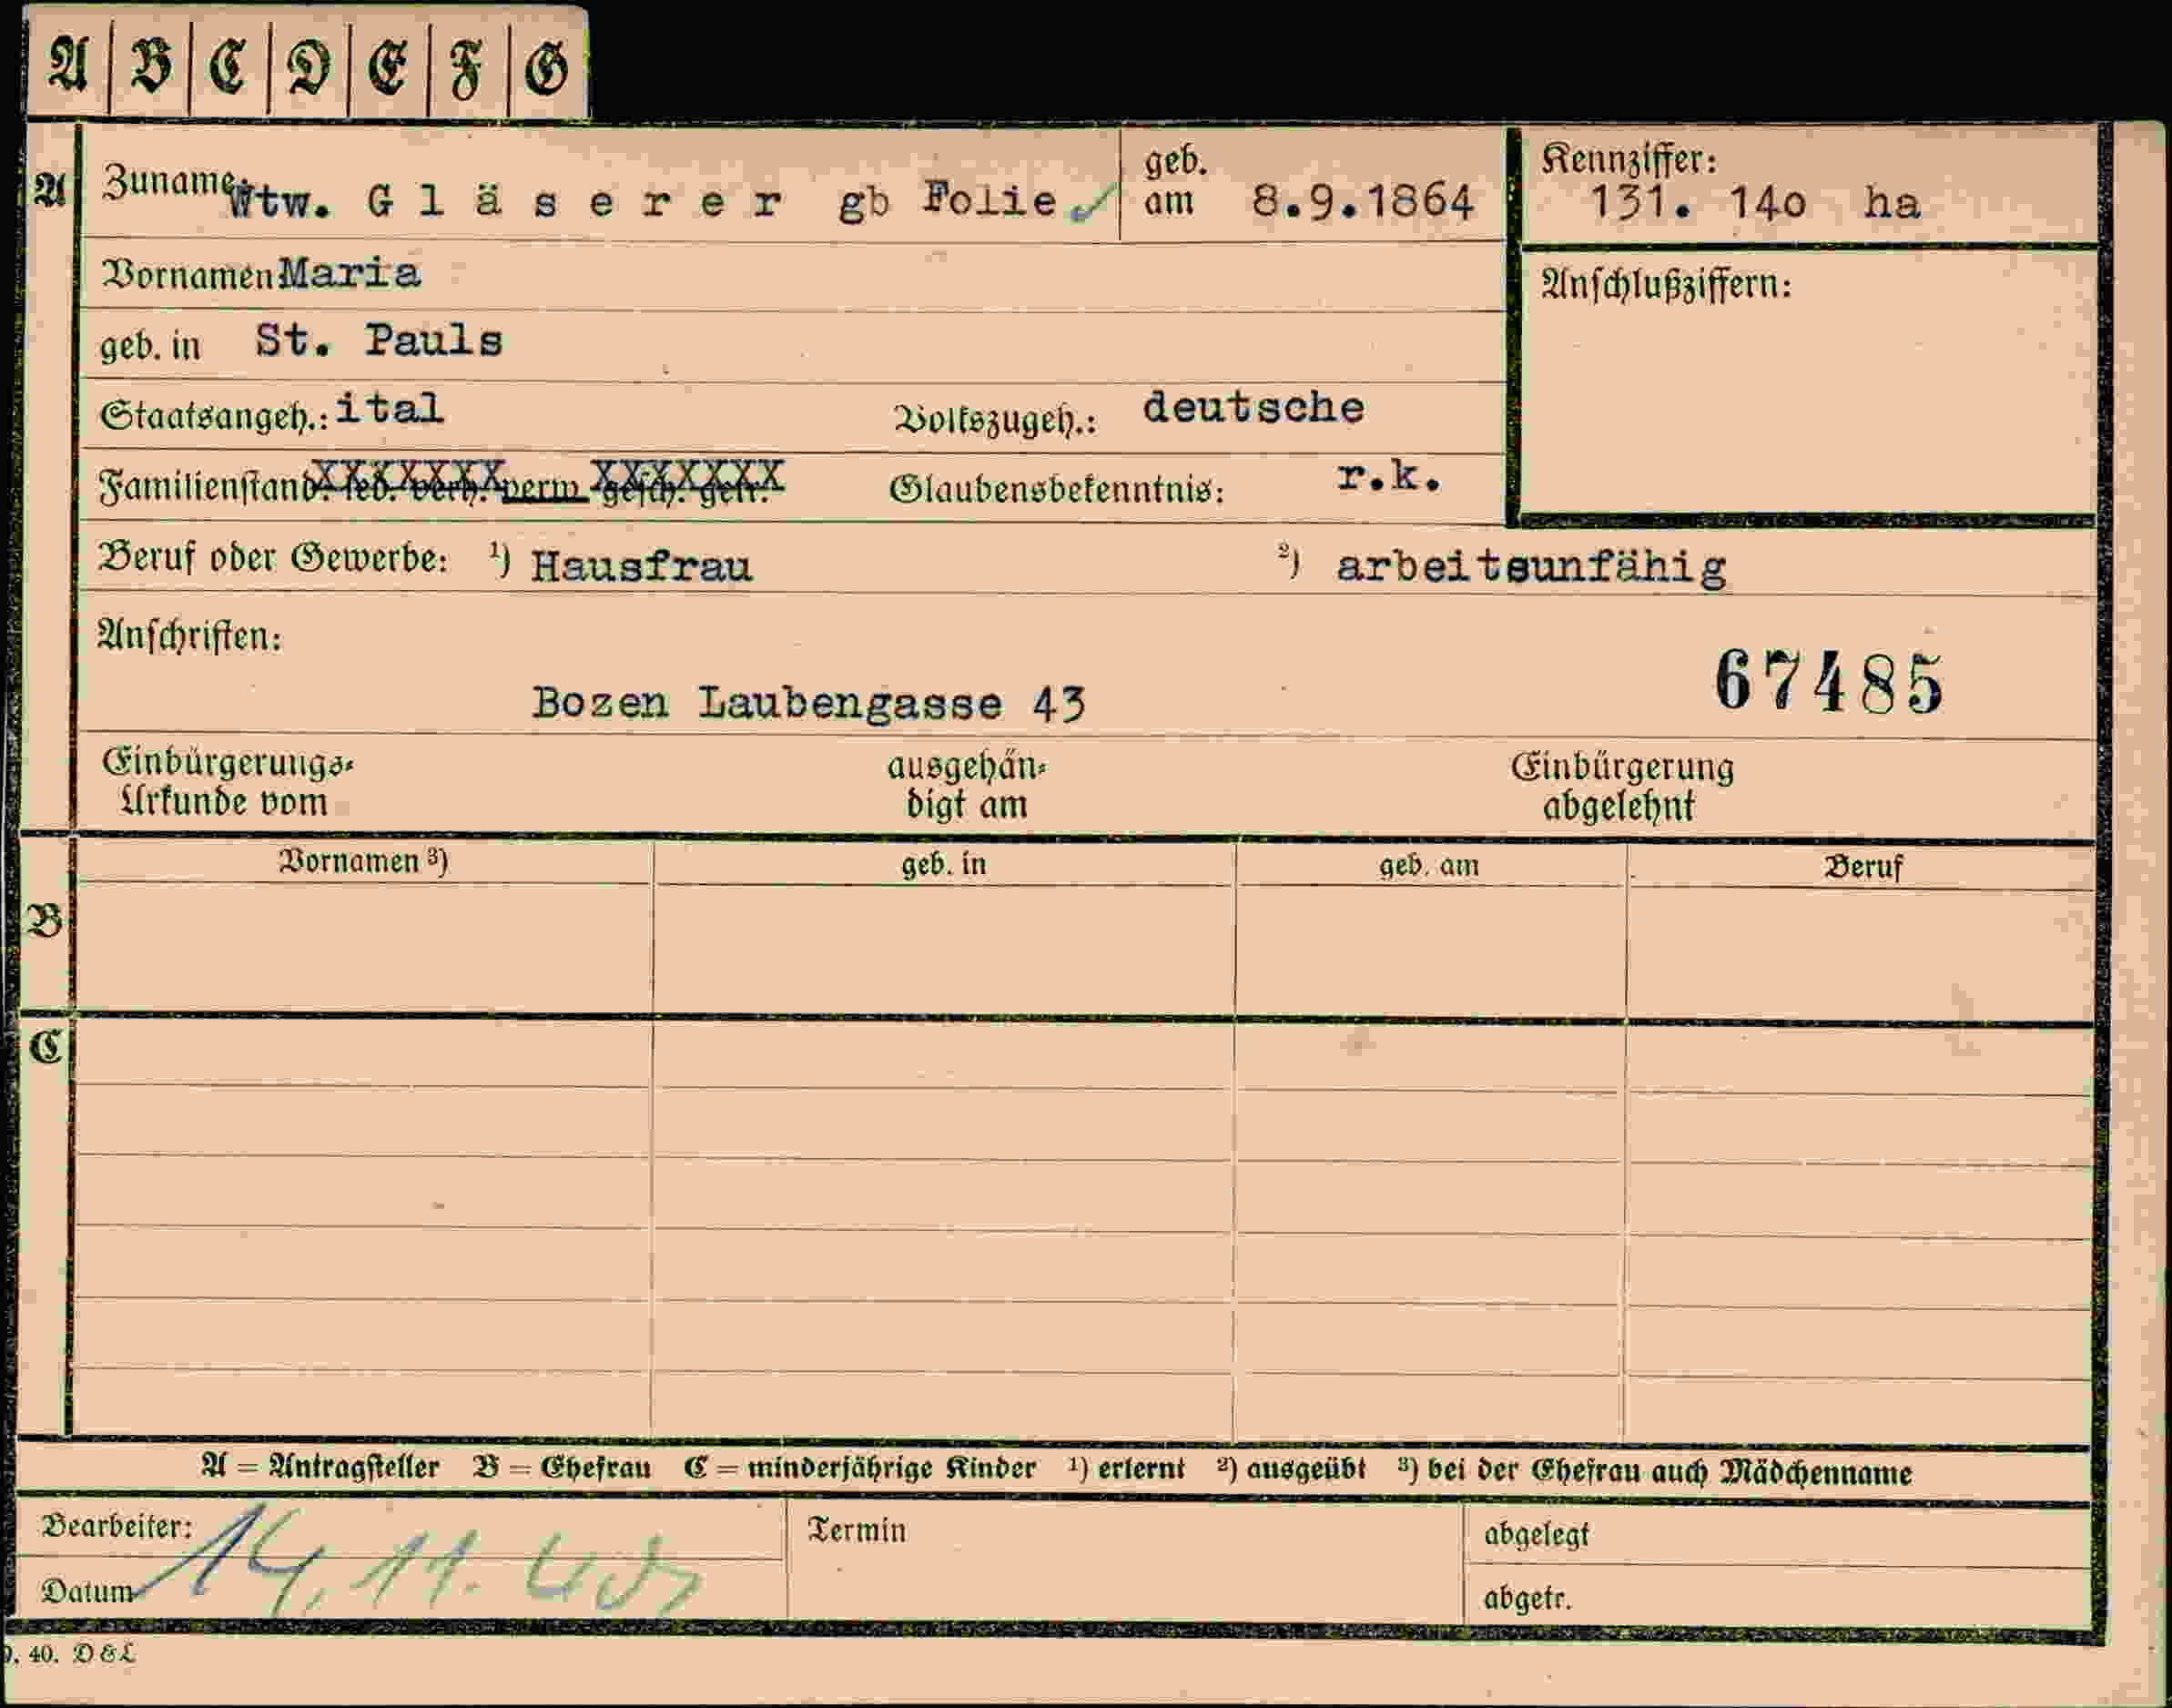 A B C D E F G
A Zuname: Wtw. G l ä s e r e r gb Folie geb. am 8.9.1864 Kennziffer: 131. 14o ha
Vornamen Maria
Anschlußziffern:
geb. in St. Pauls
Staatsangeh.: ital Volkszugeh.: deutsche
Familienstand: led. verh. verw. gesch. getr. Glaubensbekenntnis: r.k.
Beruf oder Gewerbe: ¹) Hausfrau ²) arbeitsunfähig
Anschriften:
67485
Bozen Laubengasse 43
Einbürgerungs- ausgehän- Einbürgerung
Urkunde vom digt am abgelehnt
Vornamen ³) geb. in geb. am Beruf
B
C
A = Antragsteller B = Ehefrau C = minderjährige Kinder ¹) erlernt ²) ausgeübt ³) bei der Ehefrau auch Mädchenname
Bearbeiter: Termin abgelegt
Datum 14. 11. abgetr.
40. D & L